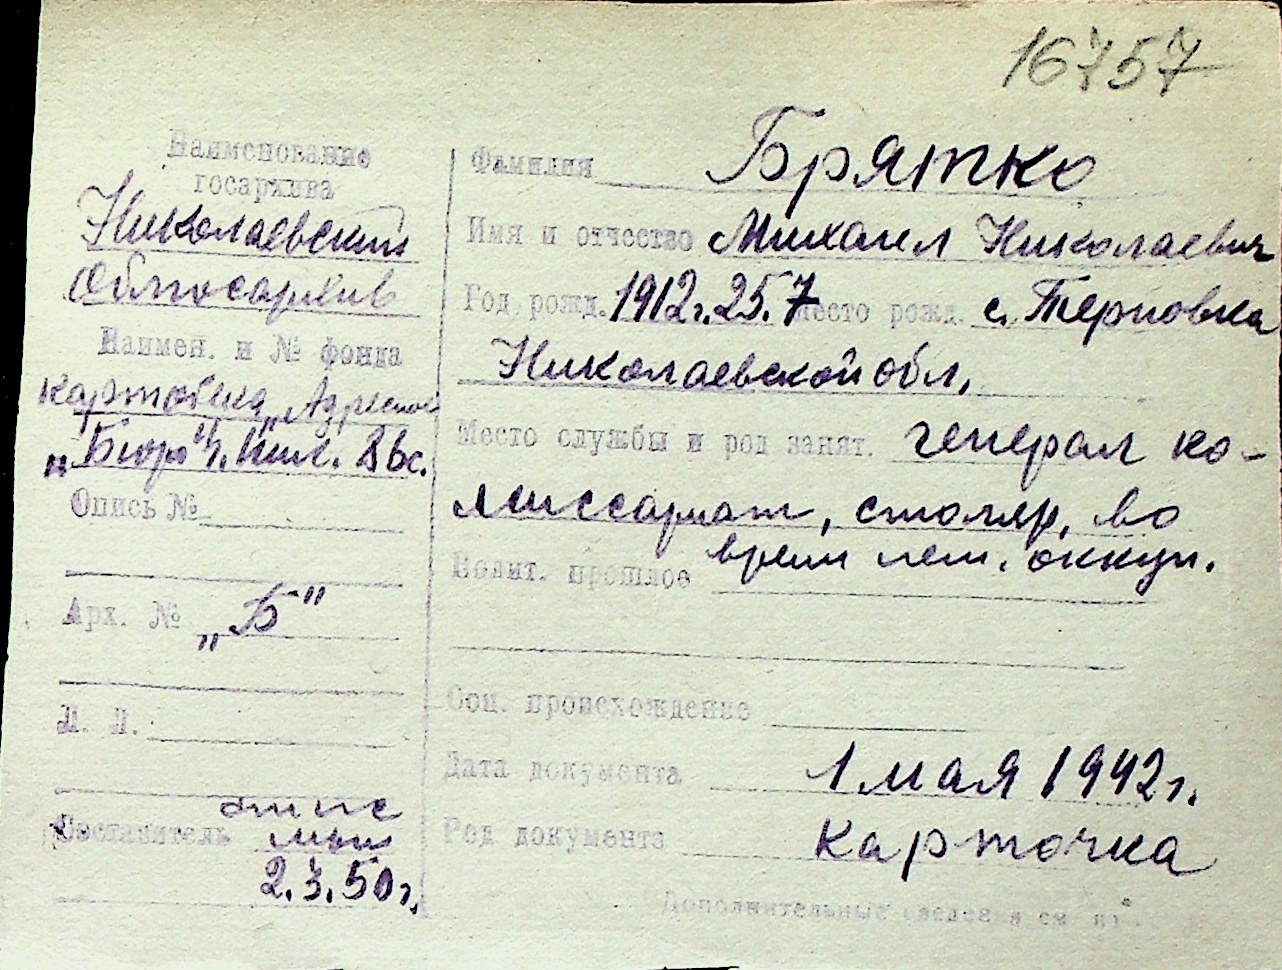 16757
Наименование
госархива
Николаевский
Облгосархив
Наимен. и № фонда
картотека „Адресное
„Бюро"
Опись №
Арх. № „Б"
Л. Л.
Составитель
2.3.50г.
Фамилия Брятко
Имя и отчество Михаил Николаевич
Год рожд. 1912г. 25.7 Место рожд. с. Терновка
Николаевской обл.
Место службы и род занят. генерал ко-
миссариат, столяр, во
Полит. прошлое время нем. оккуп.
Соц. происхождение
Дата документа 1 мая 1942г.
Род документа карточка
Дополнительные сведения см на